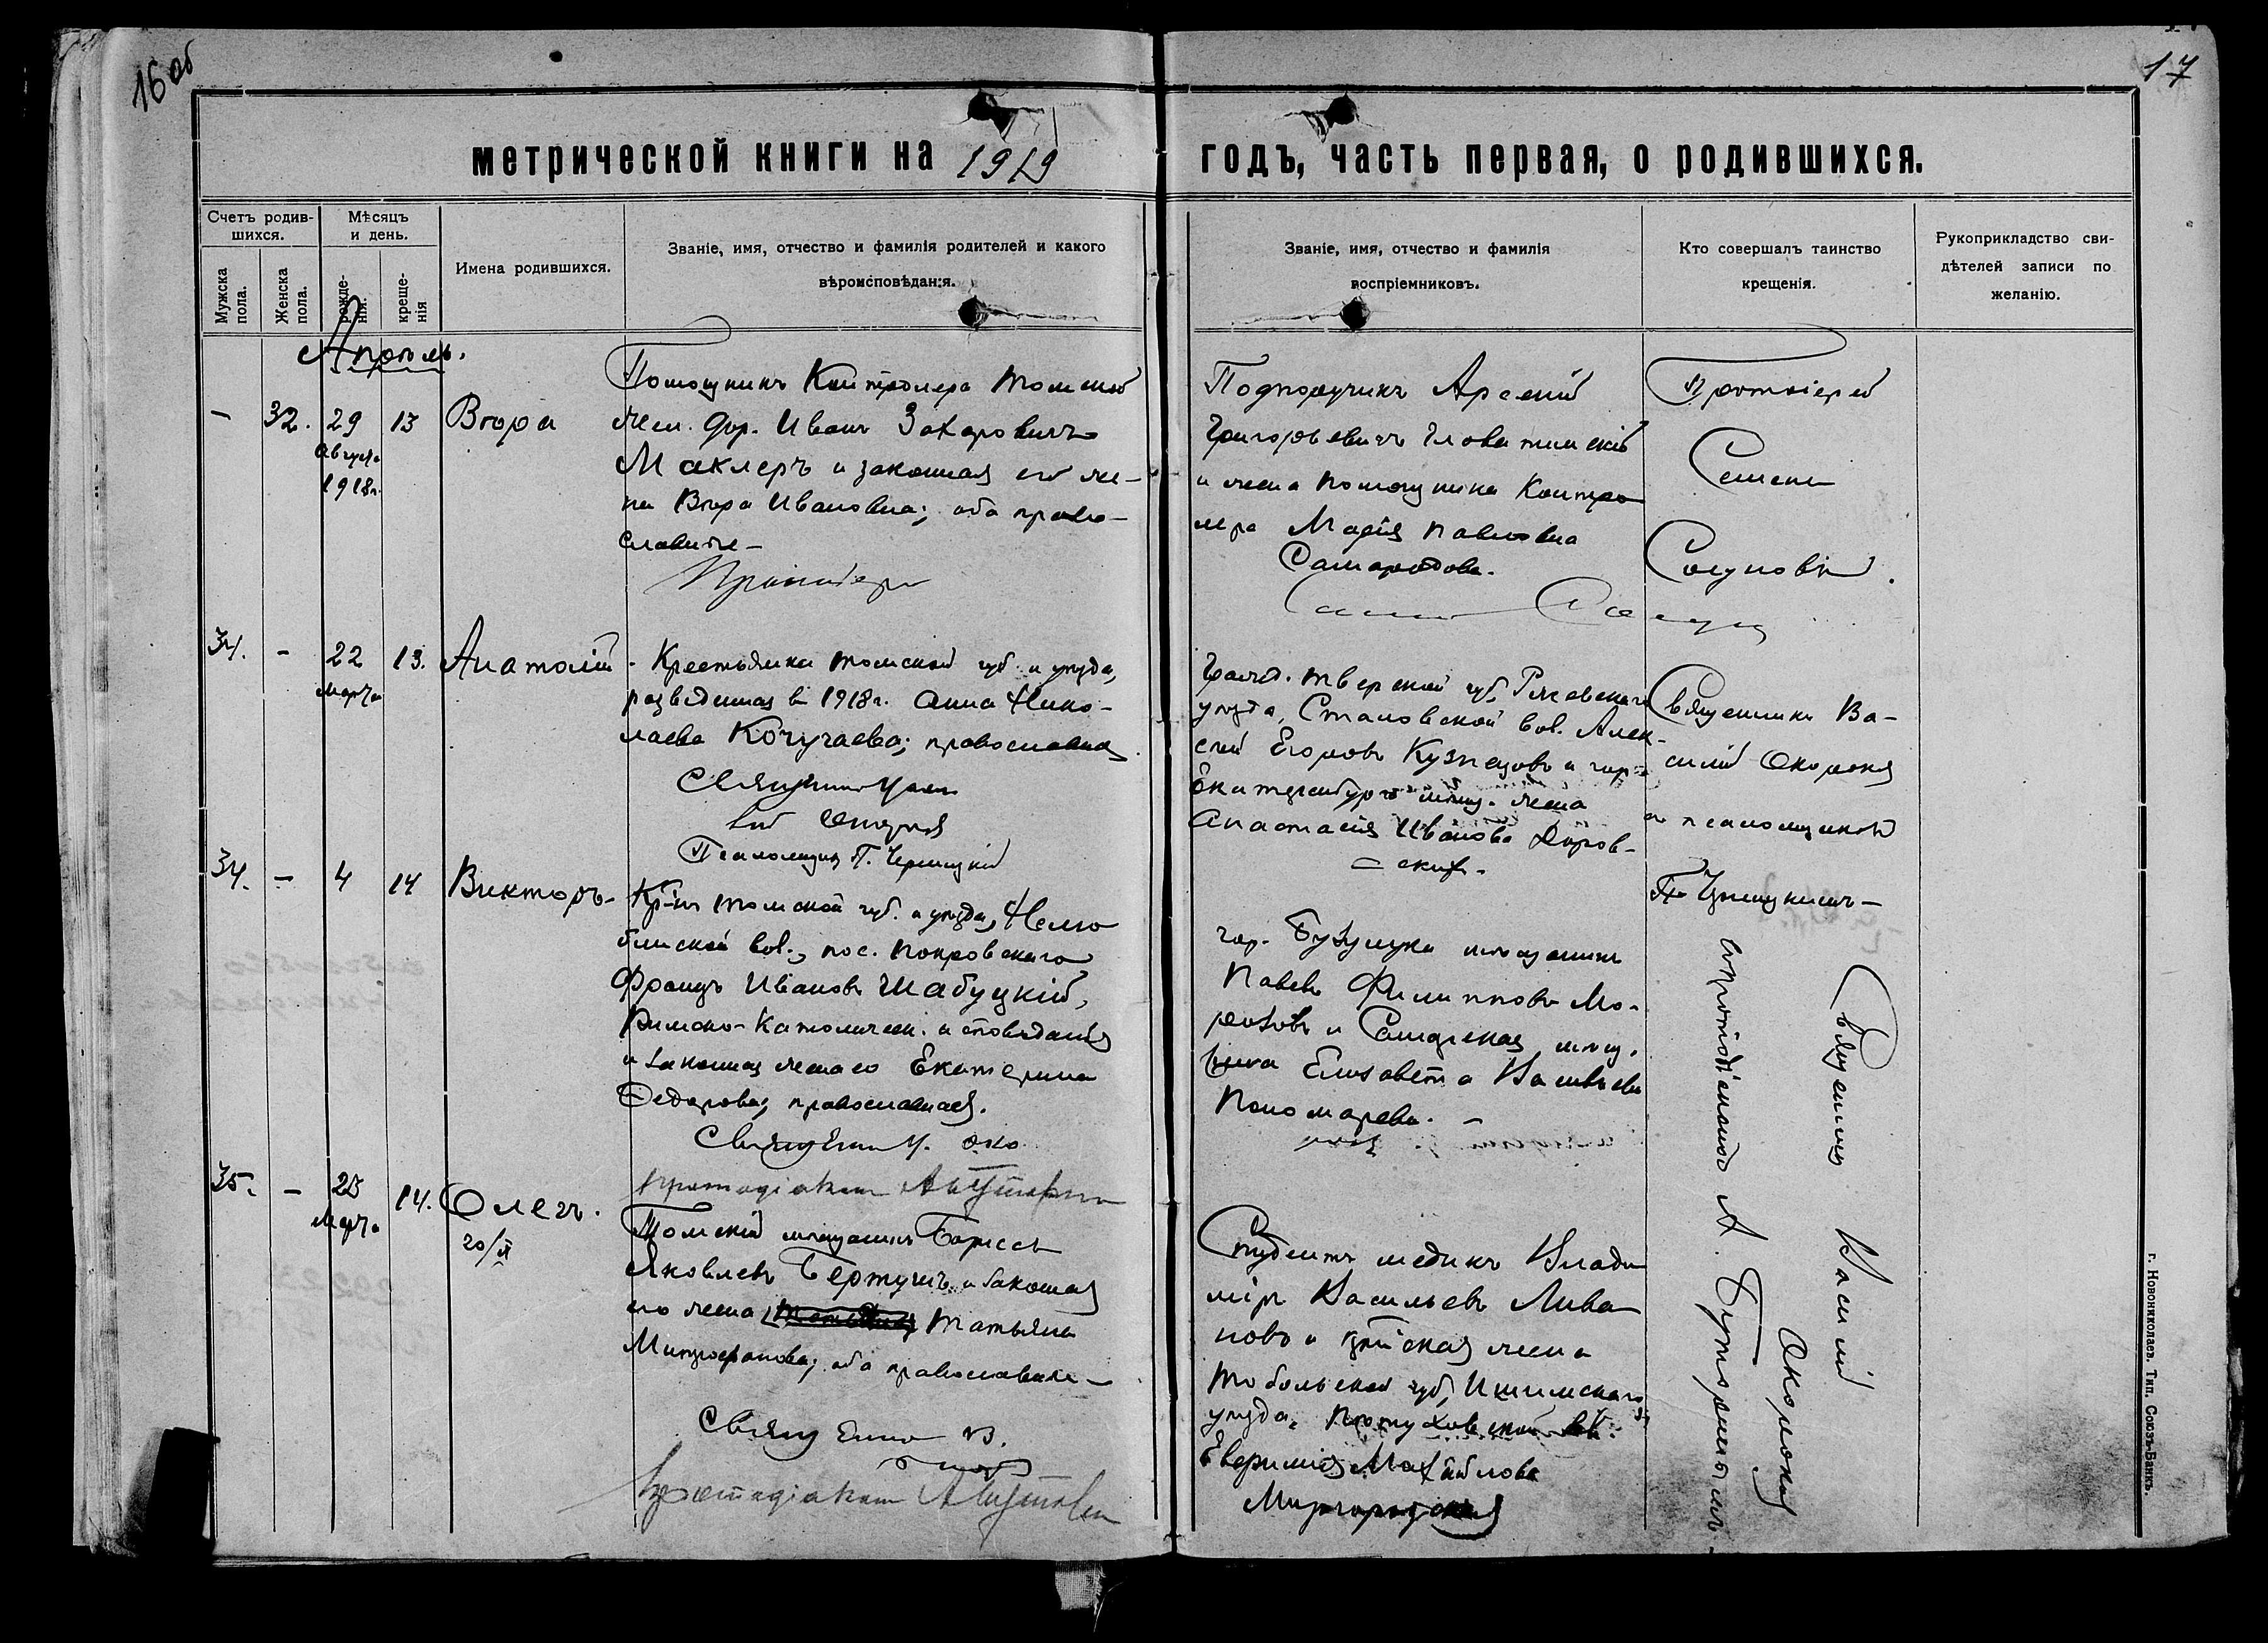 16 об
17
метрической книги на 1919
годъ, часть первая, о родившихся.
Счетъ родив-
шихся.
Мѣсяцъ
и день.
Мужска
пола.
Женска
пола.
рожде-
нія.
креще-
нія
Имена родившихся.
Званіе, имя, отчество и фамилія родителей и какого
вѣроисповѣданія.
Званіе, имя, отчество и фамилія
воспріемниковъ.
Кто совершалъ таинство
крещенія.
Рукоприкладство сви-
дѣтелей записи по
желанію.
Апрѣль.
-
32.
29
Августа
1918 г.
13
Вѣра
Помощникъ Контролера Томской
жел. дор. Иванъ Захаровичъ
Маклеръ и законная его же-
на Вѣра Ивановна; оба право-
славные
Подпоручикъ Арсеній
Григорьевичъ
и жена помощника Контро
лера Марія Павловна
Самародова.
Протоіерей
Семенъ
Сосуновъ.
34.
-
22
Марта
13.
Анатолій
Крестьянка Томской губ. и уѣзда,
разведенная въ 1918 г. Анна Нико-
лаева Кочугаева; православная
Священникъ
Псаломщикъ П.
Гражд. Тверской губ, Ржевскаго
уѣзда, Становской вол. Алек-
сѣй Егоровъ Кузнецовъ и гор.
Екатеринбурга мѣщ. жена
Анастасія Иванова Даров-
ских.
Священникъ Ва-
силій Окороковъ
съ псаломщикомъ
34.
-
4
14
Викторъ
Кр-нъ Томской губ. и уѣзда, Нелю
бинской вол., пос. Покровскаго
Францъ Ивановъ Шабуцкій,
Римско-Католическ. исповѣданія
и законная жена его Екатерина
Федорова; православная.
Священ.
Протодіаконъ
гор. Бузулука мѣщанинъ
Павелъ Филипповъ Мо-
розовъ и Самарская мѣщ.
Елизавета Васильева
Пономарева.
Священникъ Василій
Окороковъ
съ протодіакономъ А.
35.
-
25
Марта
14.
Олегъ.
20/IX
Томскій мѣщанинъ Борисъ
Яковлевъ Бертушъ и законная
его жена Татьяна
Митрофанова; оба православные
Священ. В.
Протодіаконъ
Студентъ медикъ Влади
міръ Васильевъ Лива
новъ и жена
Тобольской губ, Ишимскаго
уѣзда,
Евфимія Михайлова
Миргородская
г. Новониколаев. Тип. Союзъ-Банкъ.